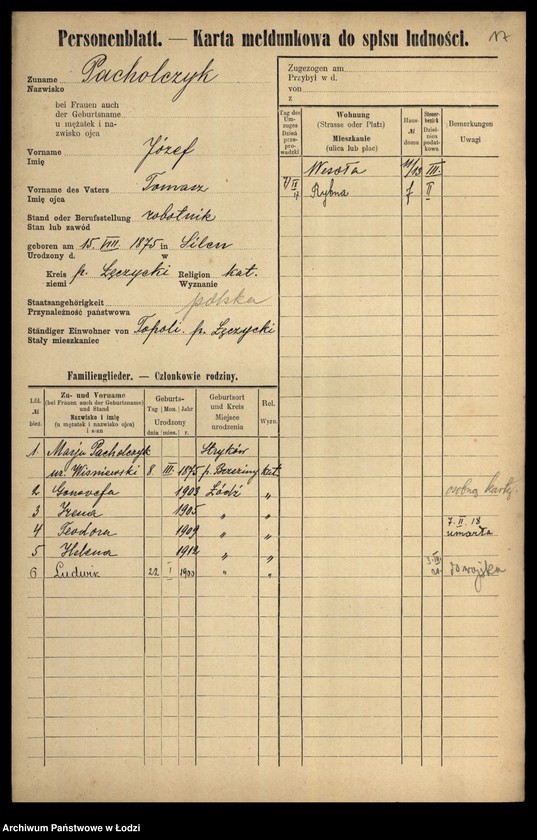 Personenblatt. — Karta meldunkowa do spisu ludności.
17
Zuname Pacholczyk
Nazwisko
bei Frauen auch
der Geburtsname
u mężatek i na-
zwisko ojca
Vorname Józef
Imię
Vorname des Vaters Tomasz
Imię ojca
Stand oder Berufsstellung robotnik
Stan lub zawód
geboren am 15. VIII 1875 in Silen
Urodzony d. w
Kreis p. Łęczycki Religion kat.
ziemi Wyznanie
Staatsangehörigkeit polska
Przynależność państwowa
Ständiger Einwohner von Topoli. p. Łęczycki
Stały mieszkaniec
Zugezogen am
Przybył w d.
von
z
Tag des Um-zuges Dzień prze-prowadzki
Wohnung (Strasse oder Platz) Mieszkanie (ulica lub plac)
Haus- № domu
Steuer-bezirk Dziel-nica podat-kowa
Bemerkungen Uwagi
Wesoła 11/13 III.
Rybna 7 II
Familienglieder. — Członkowie rodziny.
Lfd. № bież.
Zu- und Vorname (bei Frauen auch der Geburtsname) und Stand Nazwisko i imię (u mężatek i nazwisko ojca) i stan
Geburts- Tag Mon. Jahr Urodzony dnia mies. r.
Geburtsort und Kreis Miejsce urodzenia
Rel. Wyzn.
1. Marja Pacholczyk Stryków
ur. Wiśniewski 8. III. 1875 p. Brzeziny kat.
2 Genowefa 1903 Łódź " osobną kartę
3 Irena 1905 " "
4 Teodora 1909 " " 7. II. 18 umarła
5 Helena 1912 " "
6 Ludwik 22 I 1900 " " do wojska
Archiwum Państwowe w Łodzi